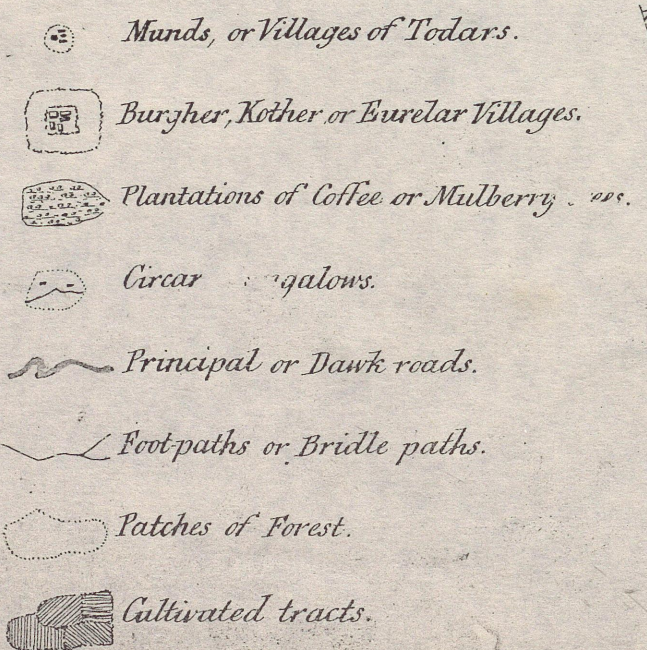 Munds, or Villages of Todars.
Burgher, Kother or Eurelar Villages.
Plantations of Coffee or Mulberry
Circar
Principal or Dawk roads.
Foot-paths or Bridle paths.
Patches of Forest.
Cultivated tracts.